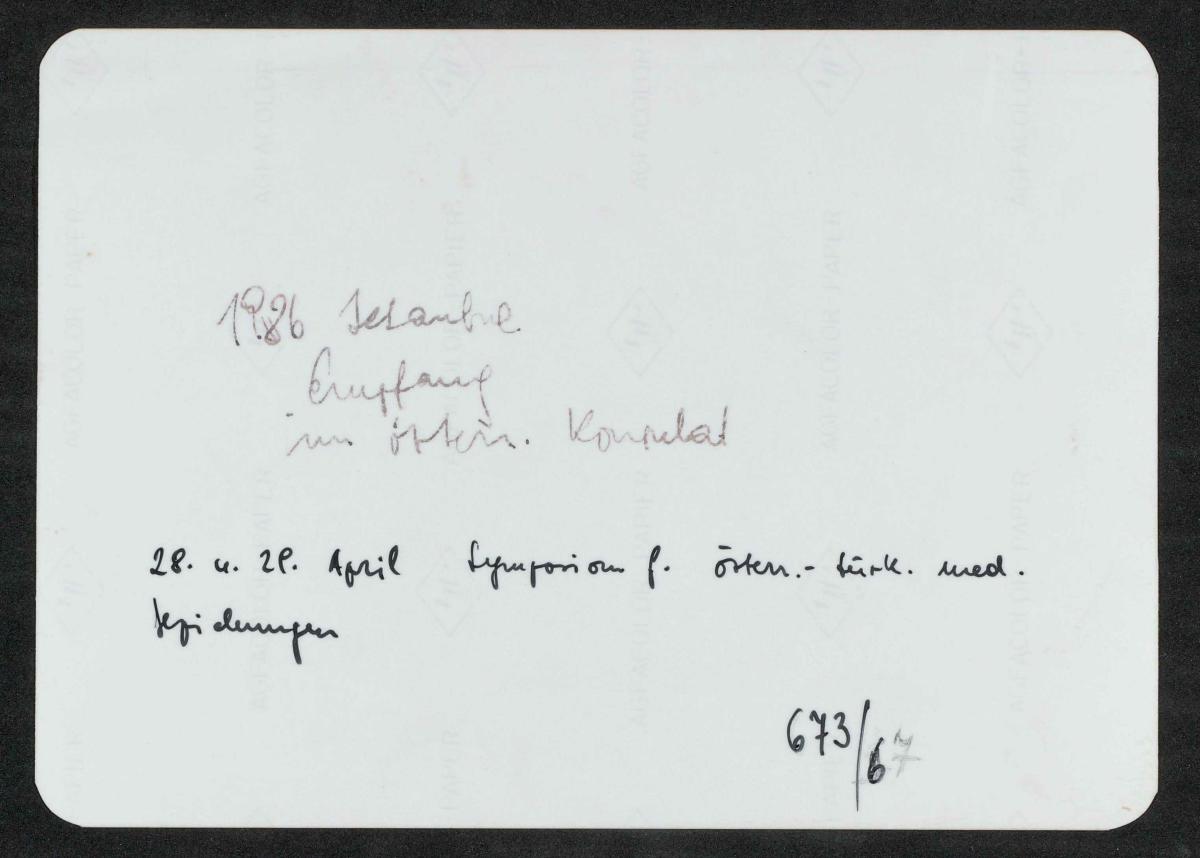 1986 Istanbul
Empfang
im österr. Konsulat
28. u. 29. April Symposion f. österr.- türk. med.
Beziehungen
673/67
AGFACOLOR PAPIER